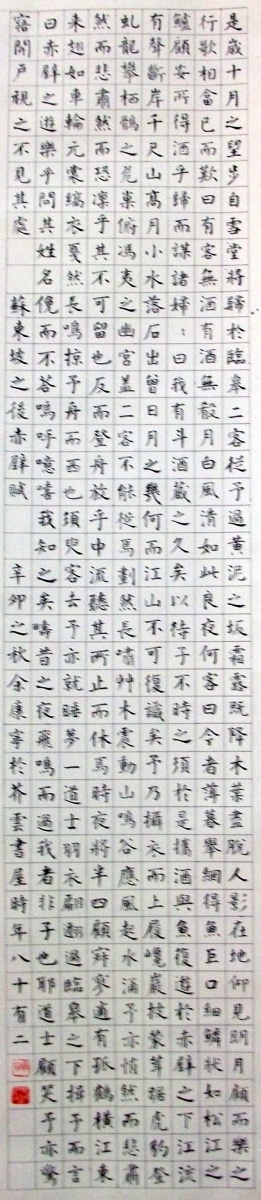 是歲十月之望步自雪堂將歸於臨皋二客從予過黃泥之坂霜露既降木葉盡脫人影在地仰見明月顧而樂之
行歌相答已而歎曰有客無酒有酒無殽月白風清如此良夜何客曰今者薄暮舉網得魚巨口細鱗狀如松江之
鱸顧安所得酒乎歸而謀諸婦婦曰我有斗酒藏之久矣以待子不時之須於是攜酒與魚復遊於赤壁之下江流
有聲斷岸千尺山高月小水落石出曾日月之幾何而江山不可復識矣予乃攝衣而上履巉巖披蒙茸踞虎豹登
虬龍攀栖鶻之危巢俯馮夷之幽宮蓋二客不能從焉劃然長嘯艸木震動山鳴谷應風起水涌予亦悄然而悲肅
然而悲肅然而恐凜乎其不可留也反而登舟放乎中流聽其所止而休焉時夜將半四顧寂寥適有孤鶴橫江東
來翅如車輪元裳縞衣戛然長鳴掠予舟而西也須臾客去予亦就睡夢一道士羽衣翩躚過臨皋之下揖予而言
曰赤壁之遊樂乎問其姓名俛而不答嗚呼噫嘻我知之矣疇昔之夜飛鳴而過我者非子也耶道士顧笑予亦驚
寤開戶視之不見其處 蘇東坡之後赤壁賦 辛卯之秋余廉寧於芥雲書屋時年八十有二